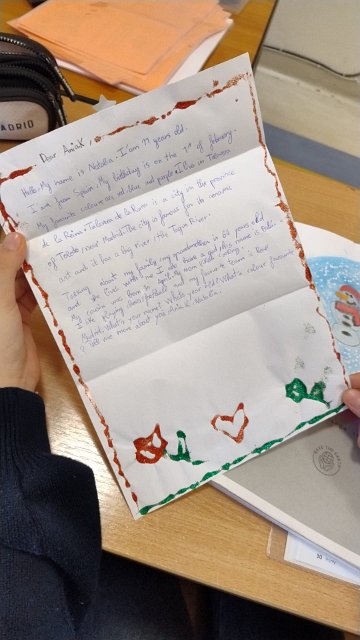 MADRID
Dear Aniak,
Hello, My name is Natalia. I am 11 years old.
I am from Spain. My birthday is on the 1st of february.
My favourite colours are red, blue and purple. I live in Talavera
de la Reina. Talavera de la Reina is a city in the province
of Toledo, near Madrid. The city is famous for its ceramic
art and it has a big river: the Tagus River.
Talking about my family, my grandmother is 64 years old
and she lives with me. I also have a
My cousin was born in april. My mom
I like playing basketball and my favourite team is Real
Madrid. What's your name? What's your What's a colour favourite
? Tell me more about you Aniak. Natalia.